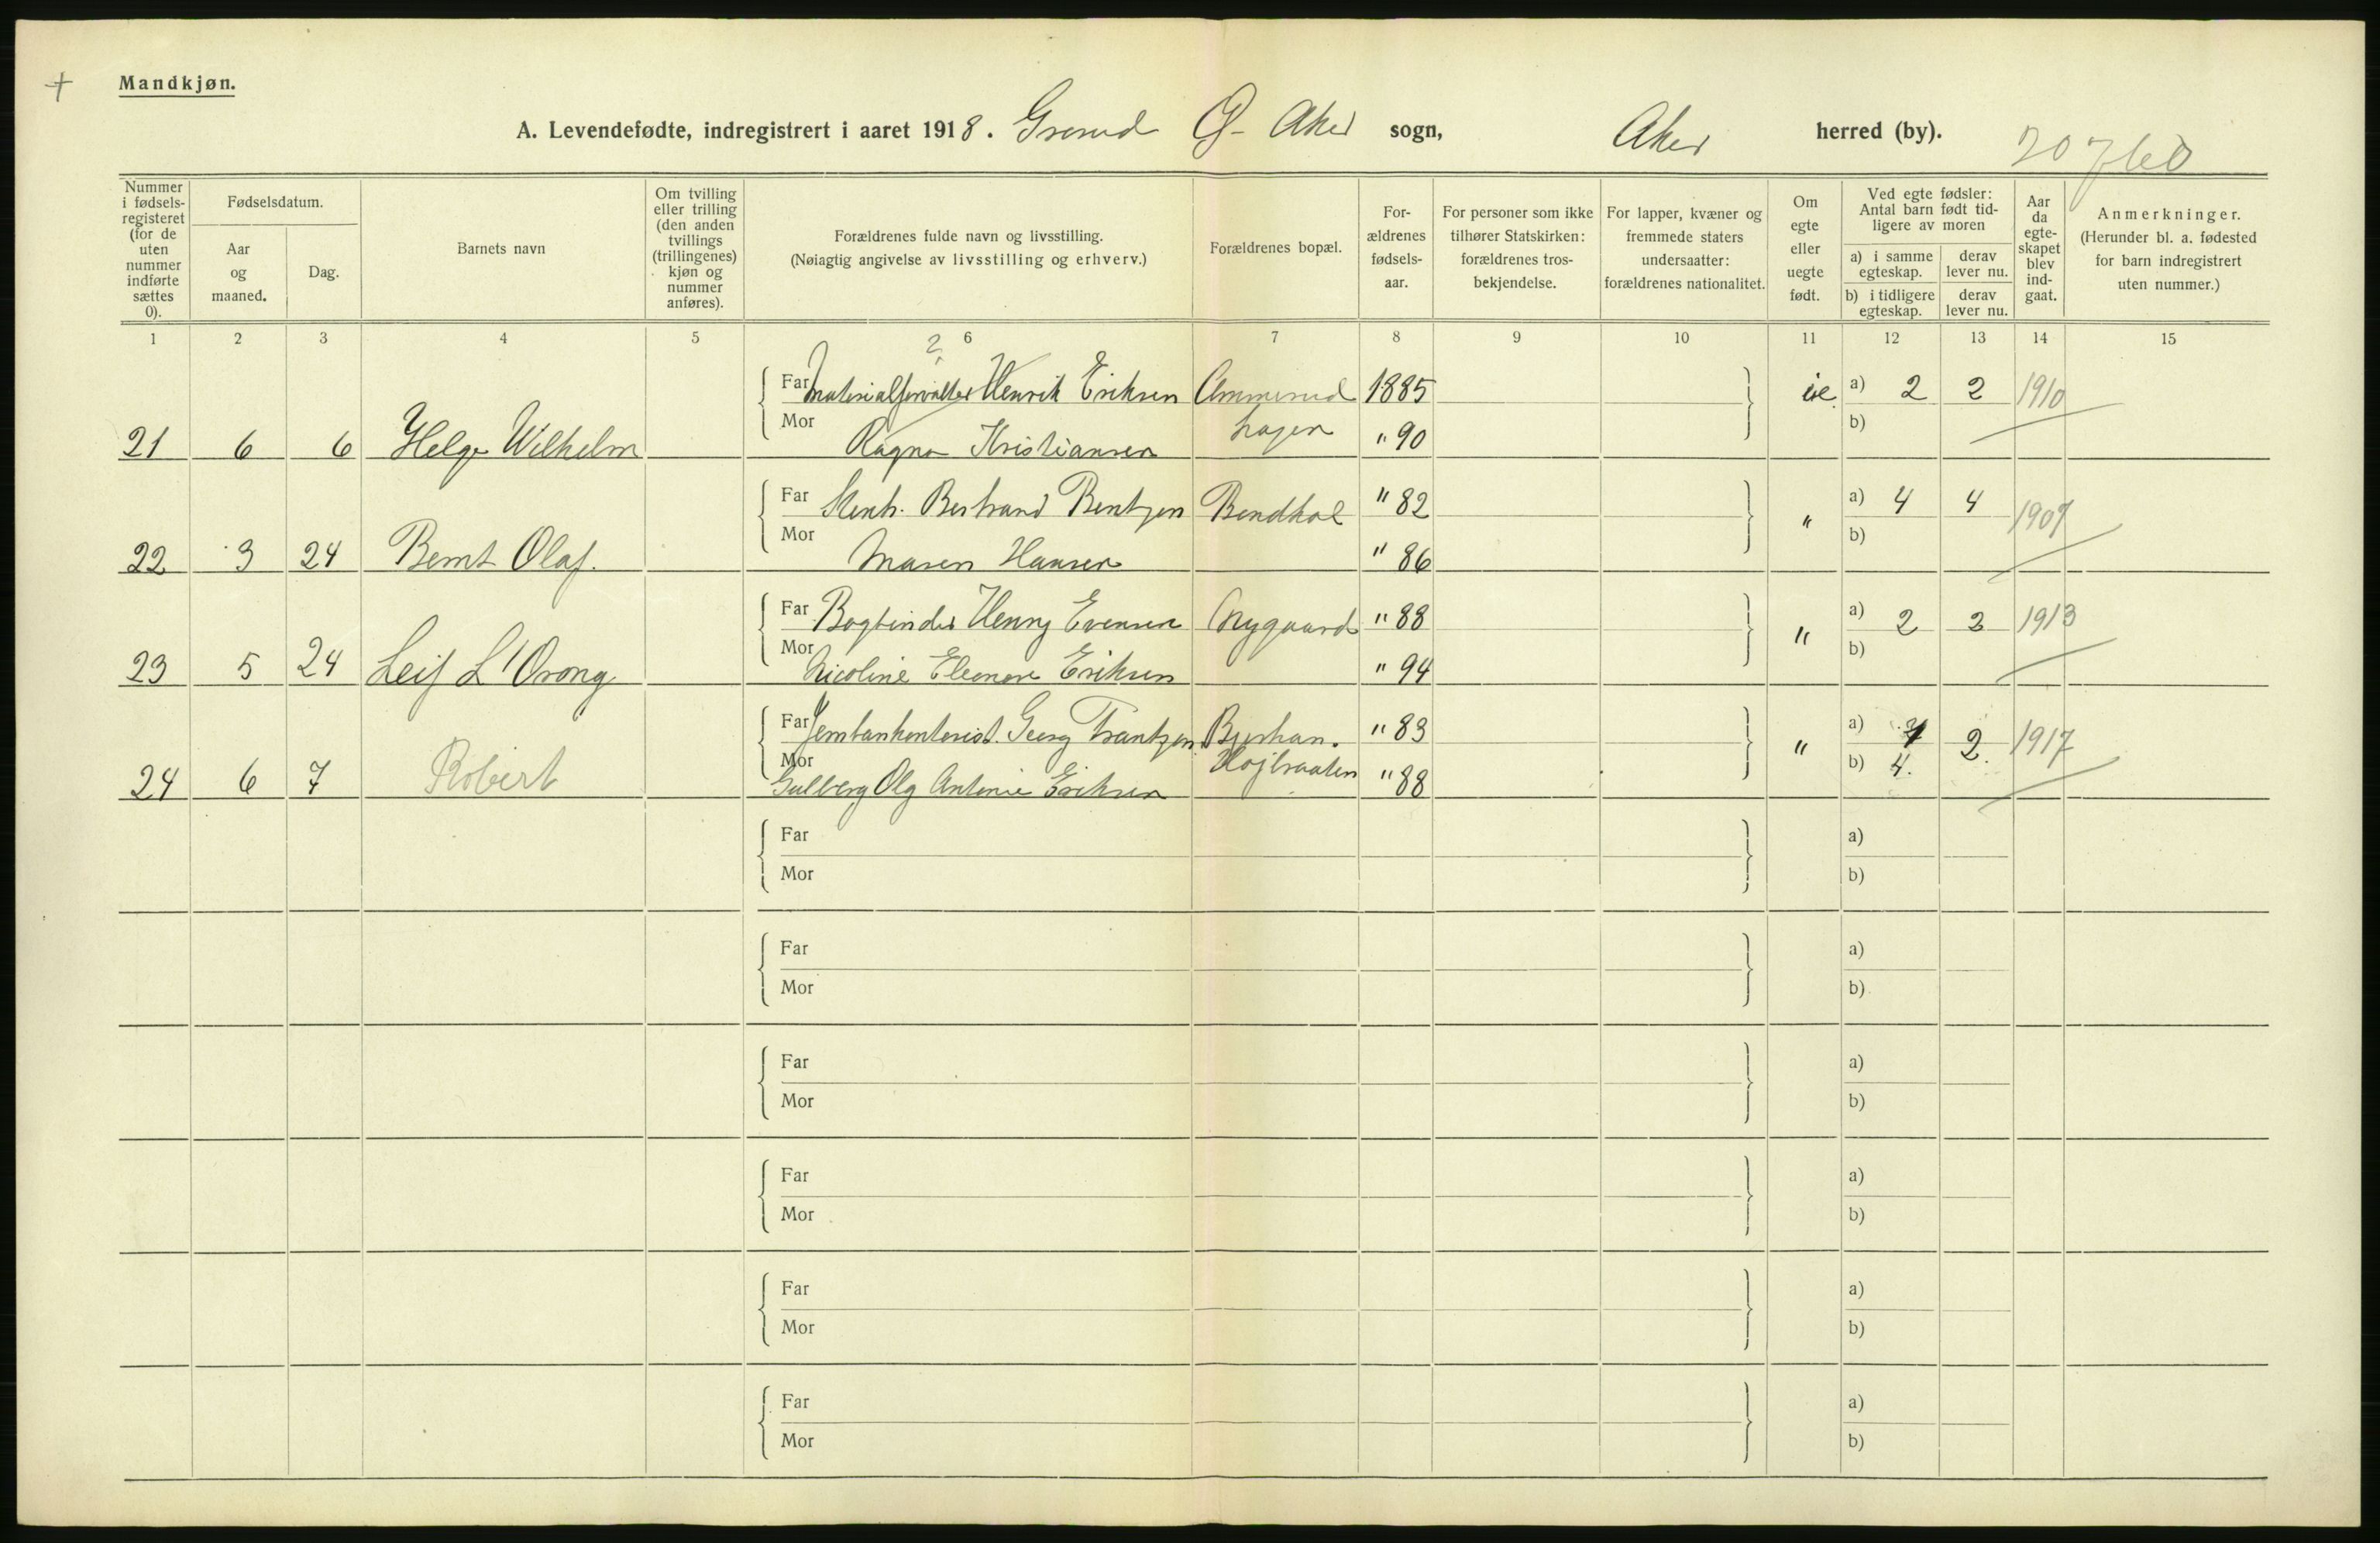 Mandkjøn.
A. Levendefødte, indregistrert i aaret 1918. Grorud Ø- Aker sogn, Aker herred (by).
20760
Nummer i fødsels-registeret (for de uten nummer indførte sættes 0).
Fødselsdatum.
Aar og maaned.
Dag.
Barnets navn
Om tvilling eller trilling (den anden tvillings (trillingenes) kjøn og nummer anføres).
Forældrenes fulde navn og livsstilling.
(Nøiagtig angivelse av livsstilling og erhverv.)
Forældrenes bopæl.
For-ældrenes fødsels-aar.
For personer som ikke tilhører Statskirken: forældrenes tros-bekjendelse.
For lapper, kvæner og fremmede staters undersaatter: forældrenes nationalitet.
Om egte eller uegte født.
Ved egte fødsler: Antal barn født tid-ligere av moren
a) i samme egteskap.
derav lever nu.
b) i tidligere egteskap.
derav lever nu.
Aar da egte-skapet blev ind-gaat.
Anmerkninger.
(Herunder bl. a. fødested for barn indregistrert uten nummer.)
1 2 3 4 5 6 7 8 9 10 11 12 13 14 15
2
Far Materialforvalter Henrik Eriksen Ammerud 1885 a) 2 2 1910
21 6 6 Helge Wilhelm Mor Ragna Kristiansen hagen " 90 b)
Far Bertrand Bentzen " 82 " a) 4 4 1907
22 3 24 Bernt Olaf. Mor Maren Hansen " 86 b)
Far Bogbinder Henry Evensen Nygaard " 88 " a) 2 2 1913
23 5 24 Leif L'Orong Mor Nicoline Eleonore Eriksen " 94 b)
Far Jernbankontorist. Georg Frantzen " 83 " a) 2. 1917
24 6 7 Robert Mor Olg Antonie Eriksen Højbraaten " 88 b) 4.
Far a)
Mor b)
Far a)
Mor b)
Far a)
Mor b)
Far a)
Mor b)
Far a)
Mor b)
Far a)
Mor b)